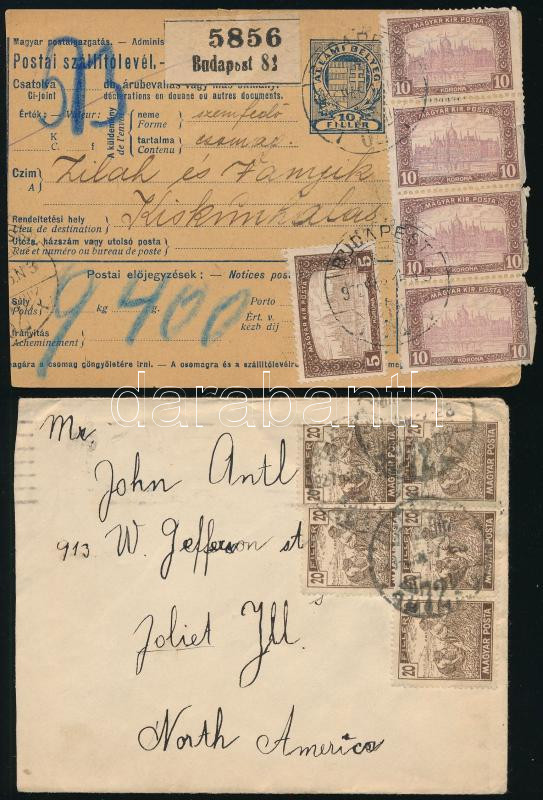 5856
Budapest 81
Magyar postaigazgatás. - Adminis
Postai szállítólevél.-
Csatolva db. árubevallás vagy más okmány.
Ci-joint déclarations en douane ou autres documents.
Érték: Valeur:
K f
C.
A küldemény
de l'envoi
neve
Forme
szemfedő
tartalma
Contenu
csomag
ÁLLAMI BÉLYEG
10
FILLÉR
Czim
A
Zilah és
Kiskunhalas
Rendeltetési hely
Lieu de destination
Utcza, házszám vagy utolsó posta
Rue et numéro ou bureau de poste
Postai előjegyzések: - Notices post
Súly
Poids
kg g.
Porto
Ért. v.
kézb dij
Irányítás
Acheminement
9 400
agára a csomag göngyöletére irni. - A csomagra és a szállitólevélre
MAGYAR KIR. POSTA
10 KORONA 10
MAGYAR KIR. POSTA
10 KORONA 10
MAGYAR KIR. POSTA
10 KORONA 10
MAGYAR KIR. POSTA
10 KORONA 10
MAGYAR KIR. POSTA
5 KORONA 5
BUDAPEST
darabanth
Mr.
John Antl
913 W. Jefferson st
Joliet Ill
North America
20 FILLÉR
MAGYAR POSTA
20 FILLÉR
MAGYAR POSTA
20 FILLÉR
MAGYAR POSTA
20 FILLÉR
MAGYAR POSTA
20 FILLÉR
MAGYAR POSTA
72